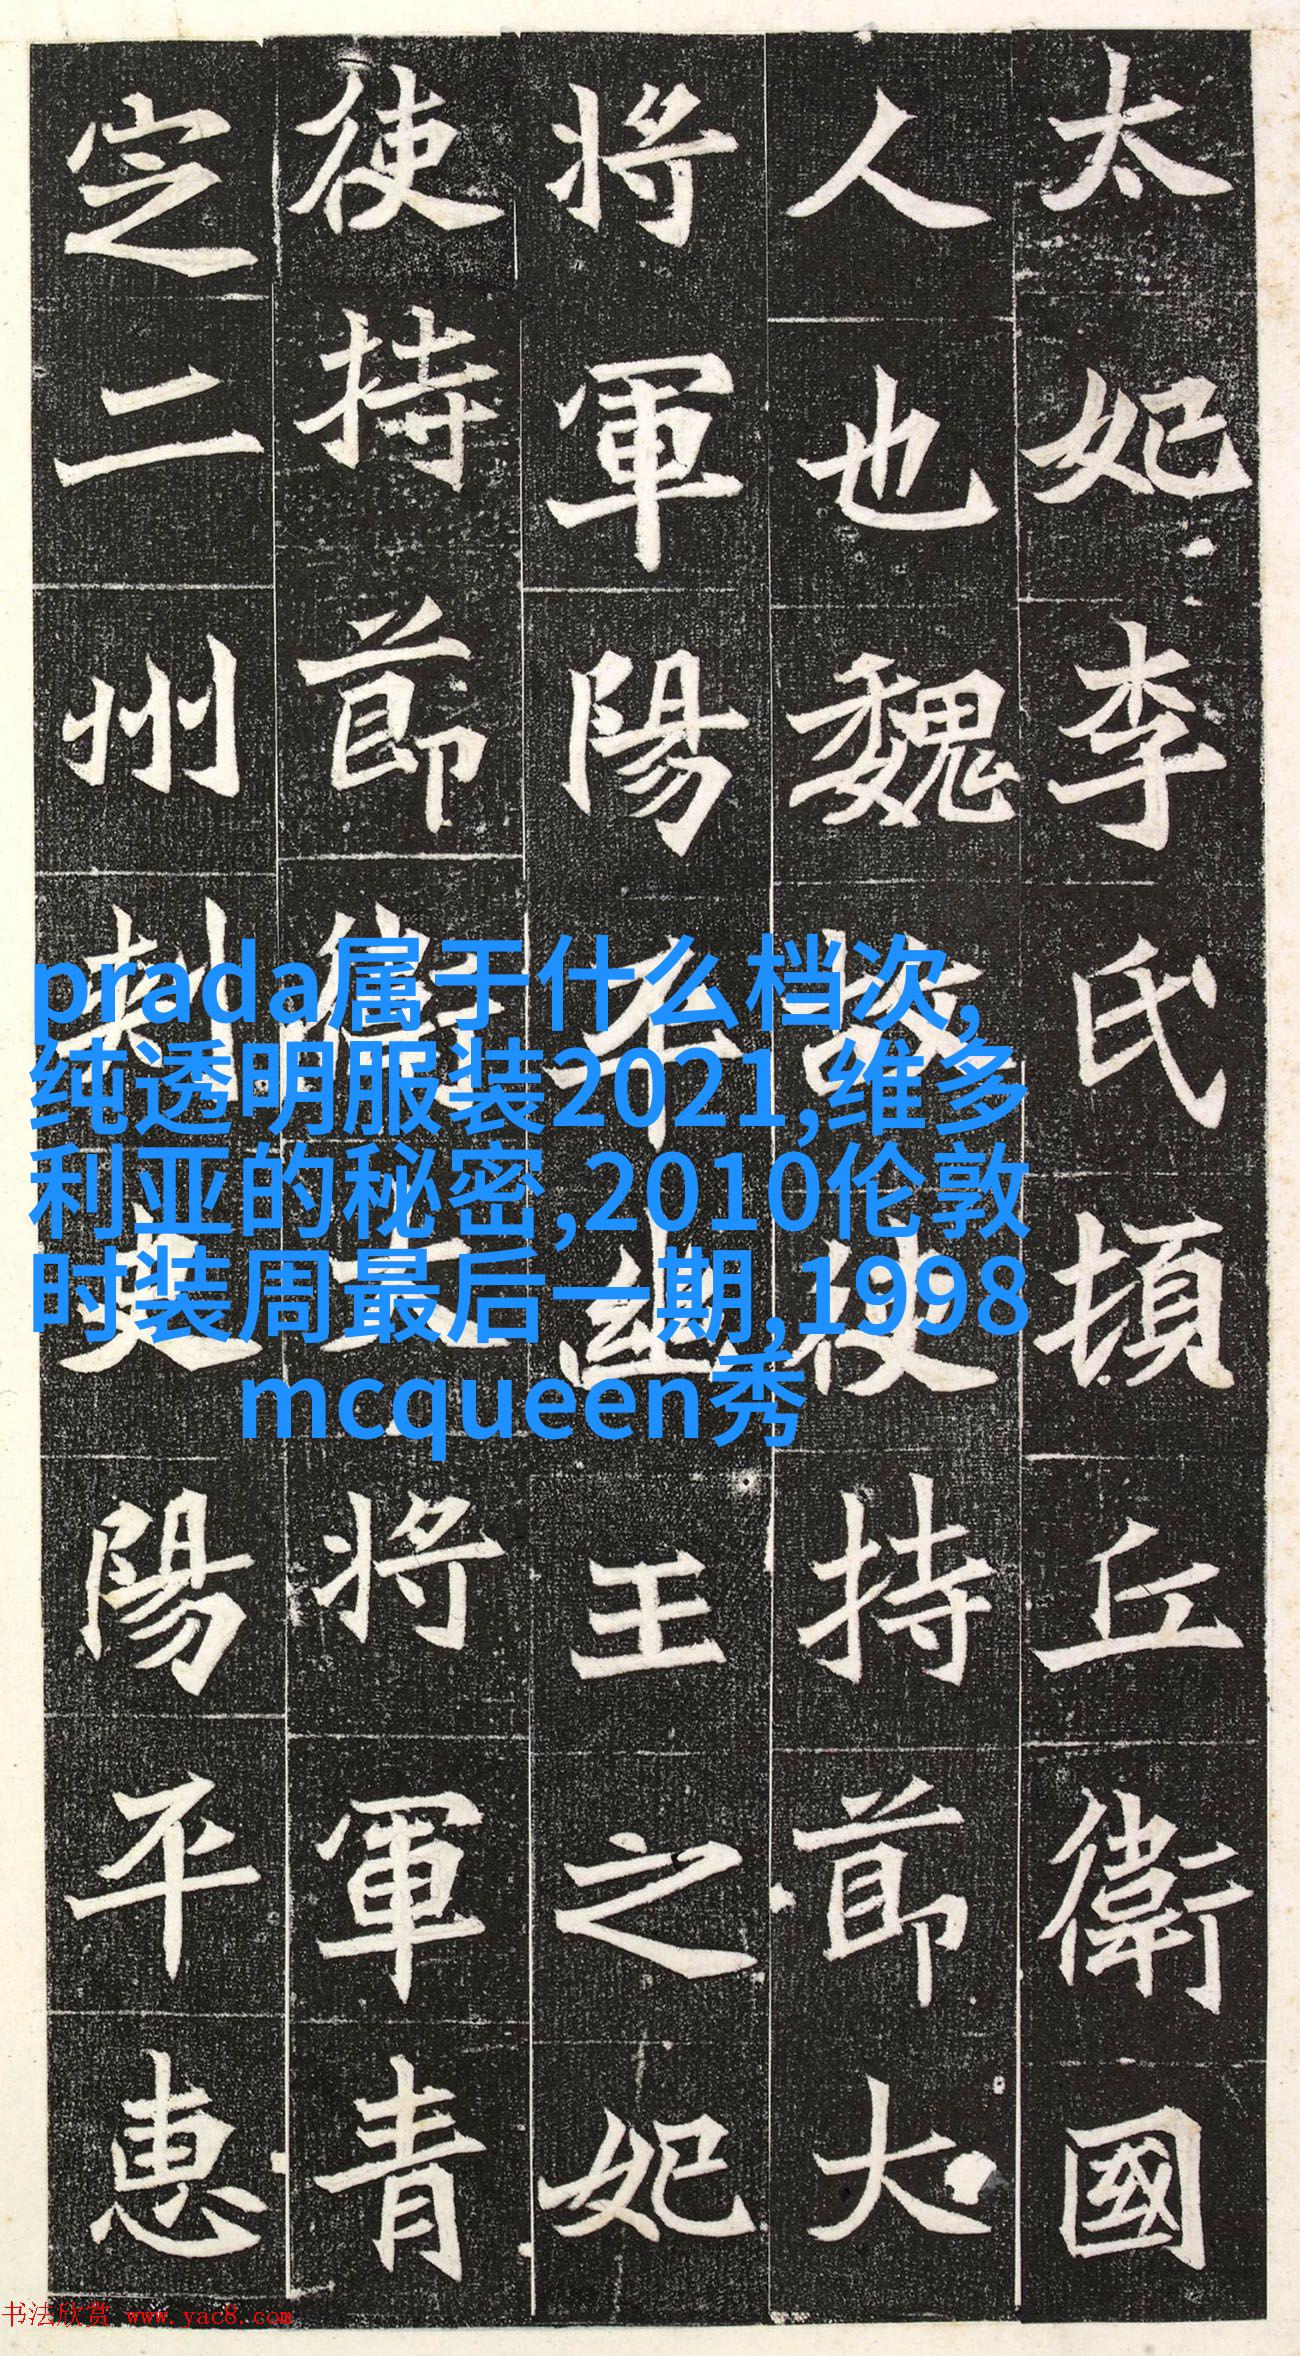 太妃李氏頓丘衛國
人也魏故使持節大
將軍陽平幽王之妃
使持節衛大將軍青
定二州刺史陽平惠
prada属于什么档次,
纯透明服装2021,维多
利亚的秘密,2010伦敦
时装周最后一期,1998
mcqueen秀
书法欣赏 www.yac8.com